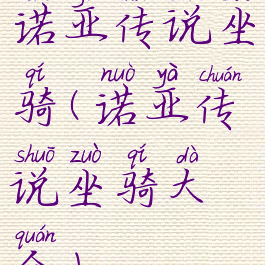 诺亚传说坐
qí nuò yà chuán
骑(诺亚传
shuō zuò qí dà
说坐骑大
quán